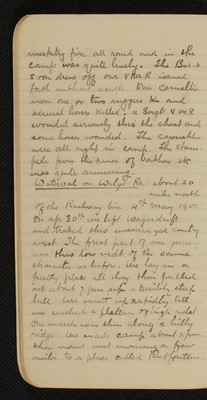 musketry fire all round and in the
camp was quite lively. The Boers
soon drew off our VMR issued
forth without result. Our casualties
were one or two niggers hit and
several horses killed. a Sergt VMR
wounded seriously thro the chest and
some horses wounded. The casualties
were all right in camp. The stam-
pede from the river of bathers etc
was quite amusing.
Waterval on Wilge Rr. about 20
miles north
of the Railway line 4th May 1901.
On Ap. 30th we left Wagendrift
and treked thro country
west. The first part of our journey
was thro low veldt of the same
character as before. We lay in a
pretty place all day then packed
out about 7 pm up a terribly steep
hill. We went up rapidly till
we reached a plateau of high veldt
Our march was then along a hilly
ridge. We made camp about 1 pm
then moved next morning a few
miles to a place called Rietfontein.